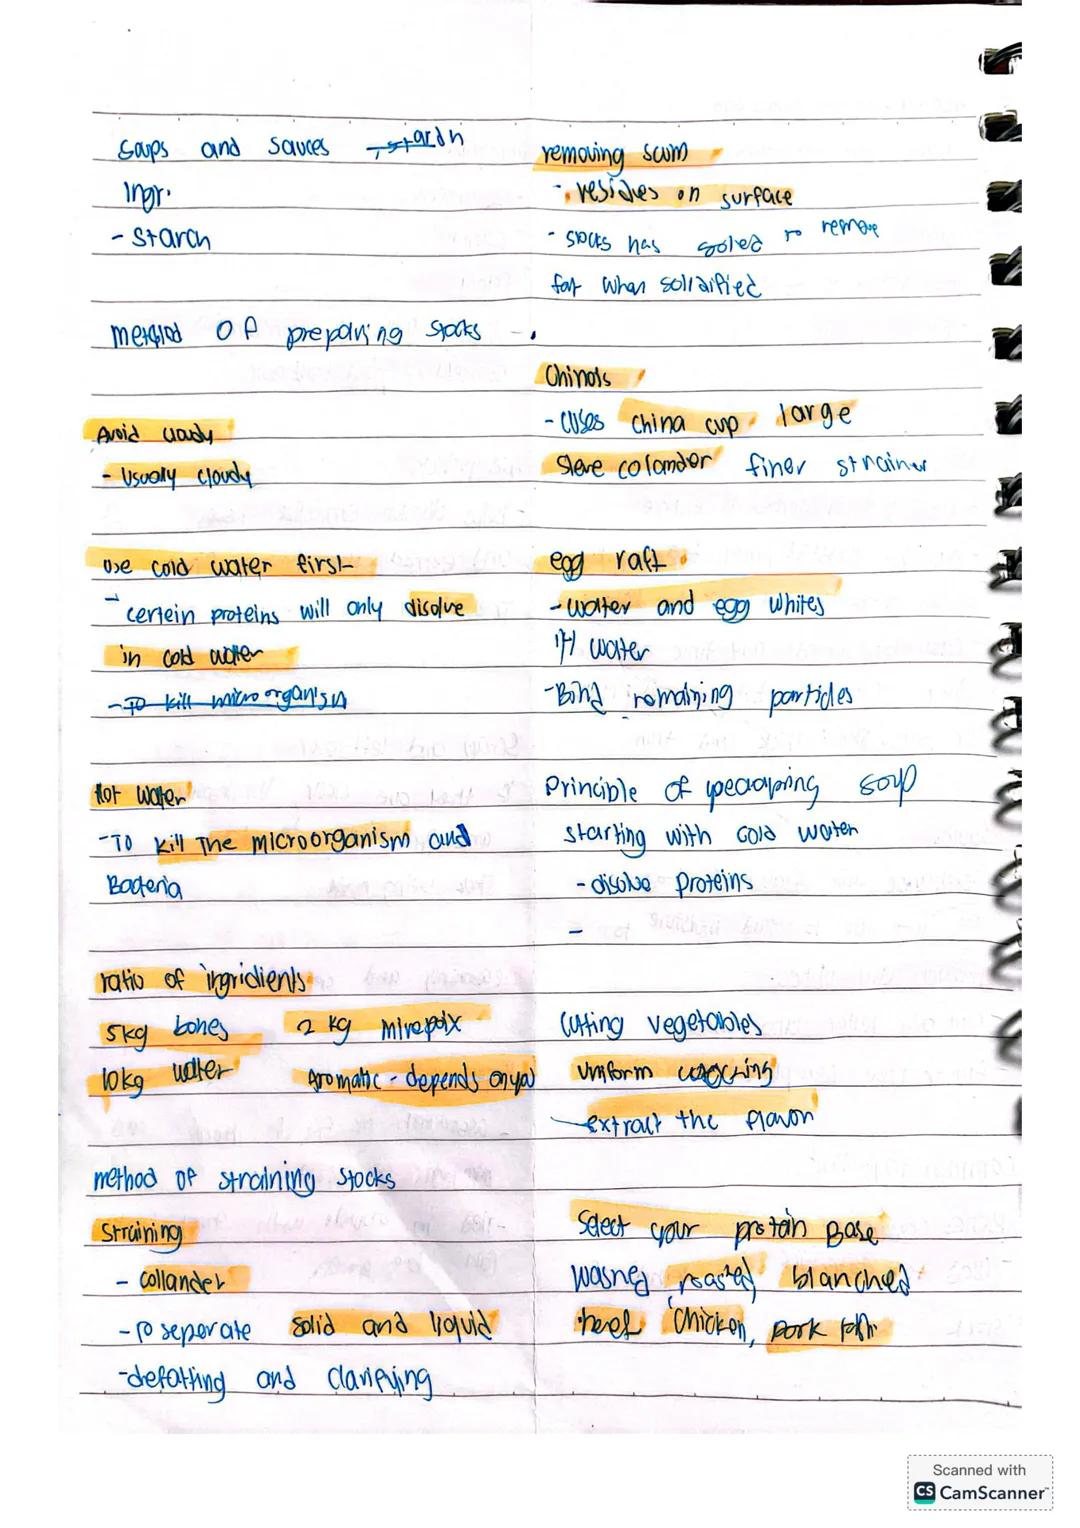 Soups and sauces → starch
Ingr.
- Starch
method of preparing stocks -
Avoid cloudy
- Usually cloudy
use cold water first
- certein proteins will only disolve
in cold water
- To kill microorganism
Hot water
- To kill The microorganism and
Bacteria
ratio of ingridients
5kg bones 2 kg mirepoix
10kg water Aromatic - depends on you
method of straining stocks
Straining
- collander
- To seperate solid and liquid
- defatting and clarifying
removing scum
- residues on surface
- stocks has to remove
fat when solidified
Chinois
- uses china cup large
Sieve colander finer strainer
egg raft
- water and egg whites
water
- Bind remaining particles
Principle of soup
starting with cold water
- disolve proteins
-
Cutting vegetables
uniform
extract the flavor
Select your protein Base
washed, roasted, blanched
beef, chicken, pork
Scanned with
CS CamScanner